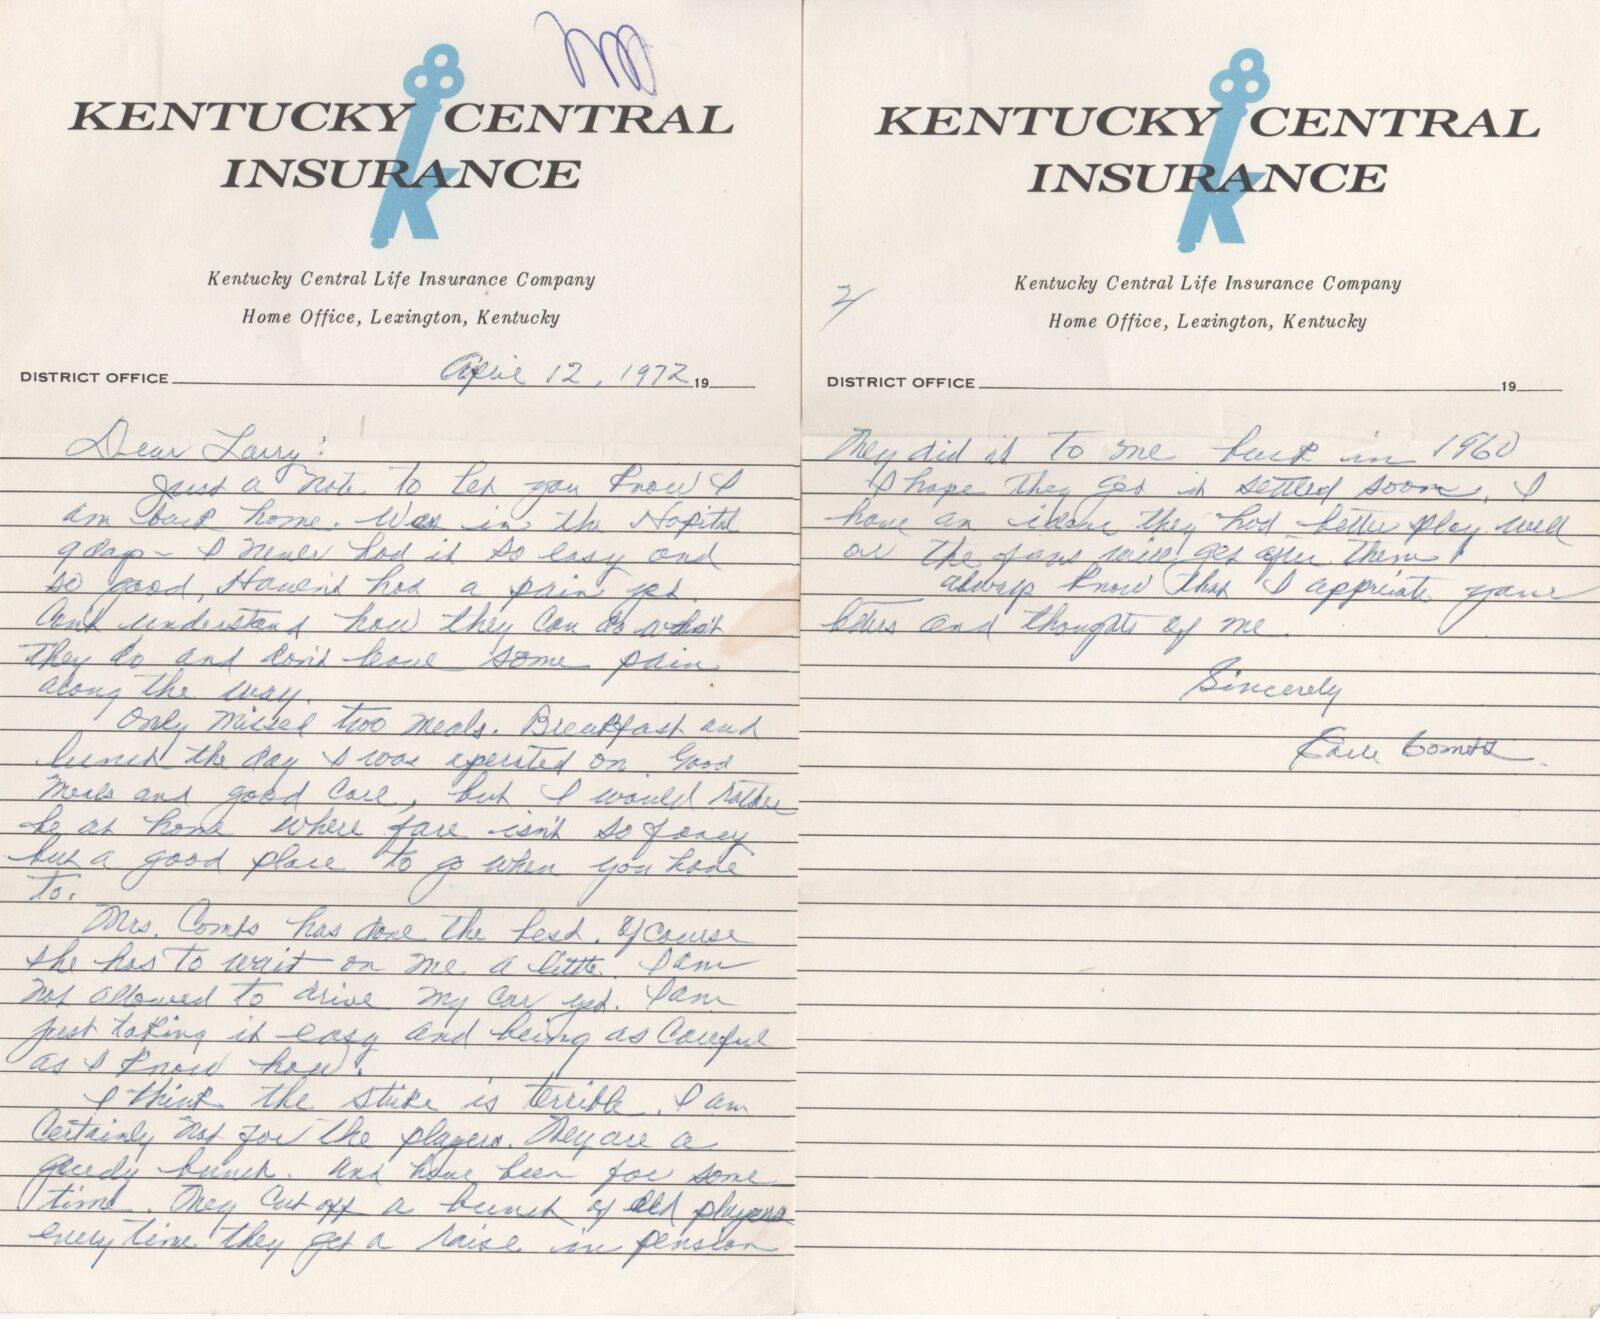 KENTUCKY CENTRAL
INSURANCE
Kentucky Central Life Insurance Company
Home Office, Lexington, Kentucky
DISTRICT OFFICE April 12, 1972 19
Dear Larry:
Just a note to let you know I
am back home. Was in the Hopital
9 days - I never had it so easy and
so good, Haven't had a pain yet.
Cant understand how they can do what
they do and don't leave some pain
along the way.
Only missed two meals. Breakfast and
lunch the day I was operated on. Good
meals and good care, but I would rather
be at home where fare isn't so fancy
but a good place to go when you have
to.
Mrs. Combs has done the best. Of course
she has to wait on me a little. I am
not allowed to drive my car yet. I am
just taking it easy and being as careful
as I know how.
I think the strike is terrible. I am
Certainly not for the players. They are a
greedy bunch. And have been for some
time. They cut off a bunch of old players
every time they get a raise in pension
KENTUCKY CENTRAL
INSURANCE
Kentucky Central Life Insurance Company
2/
Home Office, Lexington, Kentucky
DISTRICT OFFICE 19
They did it to me back in 1960
I hope they get it settled soon. I
have an they had better play well
or the fans will get after them
always know that I appriate your
letters and thoughts of me.
Sincerely
Earle Combs.